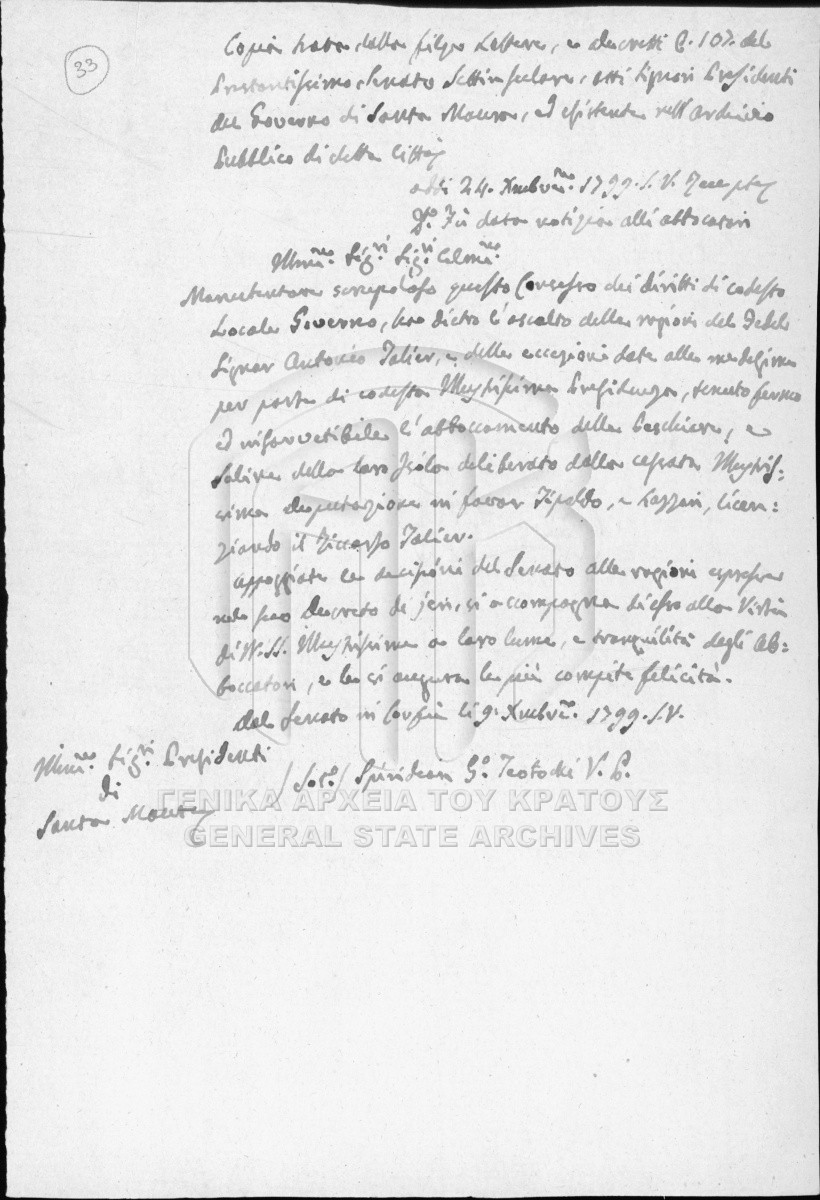 33
Copia tratta dalla filza Lettere, e decretti C. 107. del
Prestantissimo Senato Settinsulare, atti Signori Presidenti
del Governo di Santa Maura, ed esistente nell'Archivio
Pubblico di detta Città
adi 24. Xmbre. 1799. S.V.
Do. Fù data notizia alli abboccatori
Illmi. Sigri. Sigri. Colmi.
Manutentore scrupoloso questo Consesso dei diritti di codesto
Locale Governo, ha dietro l'ascolto delle ragioni del Fedel
Signor Antonio Talier, e delle eccezioni date alle medesime
per parte di codesta Illustrissima Presidenza, tenuto fermo
ed inforvetibile l'abboccamento delle Peschiere, e
Saline della loro Isola deliberato dalla cessata Illustris:
sima Deputazione in favor Tipaldo, e Lazzari, licen:
ziando il Talier.
Appoggiate le decisioni del Senato alle ragioni espresse
nel suo Decreto di jeri, si accompagna di esso alle Virtù
di V.SS. Illustrissime a loro lume, e tranquilità degli Ab:
boccatori, e le si augura le più compite felicità.
Dal Senato in Corfù li 9. Xmbre. 1799. S.V.
Illmi. Sigri. Presidenti
di
Santa Maura
/Sos./ Spiridion Go. Teotochi V. P.
ΓΕΝΙΚΑ ΑΡΧΕΙΑ ΤΟΥ ΚΡΑΤΟΥΣ
GENERAL STATE ARCHIVES